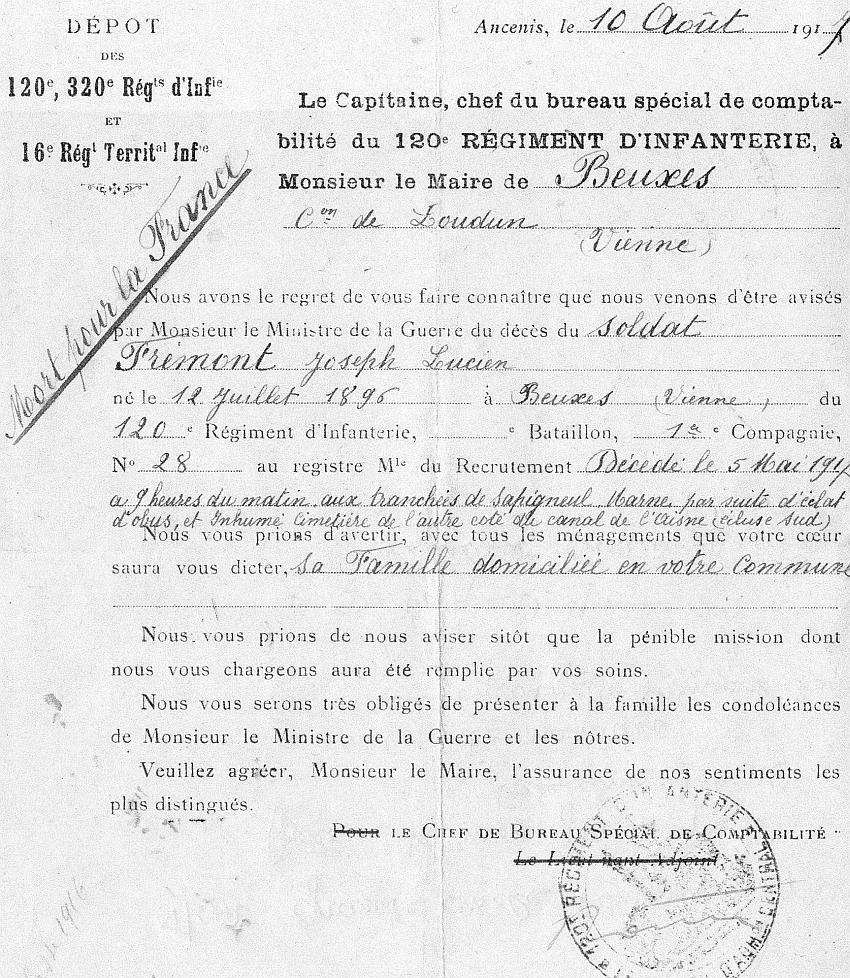 DÉPOT
DES
120e, 320e Régts d'Infie
ET
16e Régt Territal Infie
Mort pour la France
Ancenis, le 10 Août 1917
Le Capitaine, chef du bureau spécial de compta-
bilité du 120e RÉGIMENT D'INFANTERIE, à
Monsieur le Maire de Beuxes
Con de Loudun
(Vienne)
Nous avons le regret de vous faire connaître que nous venons d'être avisés
par Monsieur le Ministre de la Guerre du décès du soldat
Frémont Joseph Lucien
né le 12 Juillet 1896 à Beuxes (Vienne) du
120e Régiment d'Infanterie, e Bataillon, 1ere Compagnie,
No 28 au registre Mle du Recrutement Décédé le 5 Mai 1917
a 9 heures du matin aux tranchées de Sapigneul Marne, par suite d'éclat
d'obus, et Inhumé Cimetière de l'autre coté du canal de l'aisne (écluse sud)
Nous vous prions d'avertir, avec tous les ménagements que votre cœur
saura vous dicter, sa Famille domiciliée en votre Commune
Nous vous prions de nous aviser sitôt que la pénible mission dont
nous vous chargeons aura été remplie par vos soins.
Nous vous serons très obligés de présenter à la famille les condoléances
de Monsieur le Ministre de la Guerre et les nôtres.
Veuillez agréer, Monsieur le Maire, l'assurance de nos sentiments les
plus distingués.
Pour le Chef de Bureau Spécial de Comptabilité
Le Lieutenant Adjoint,
120e RÉGIMENT D'INFANTERIE
1916